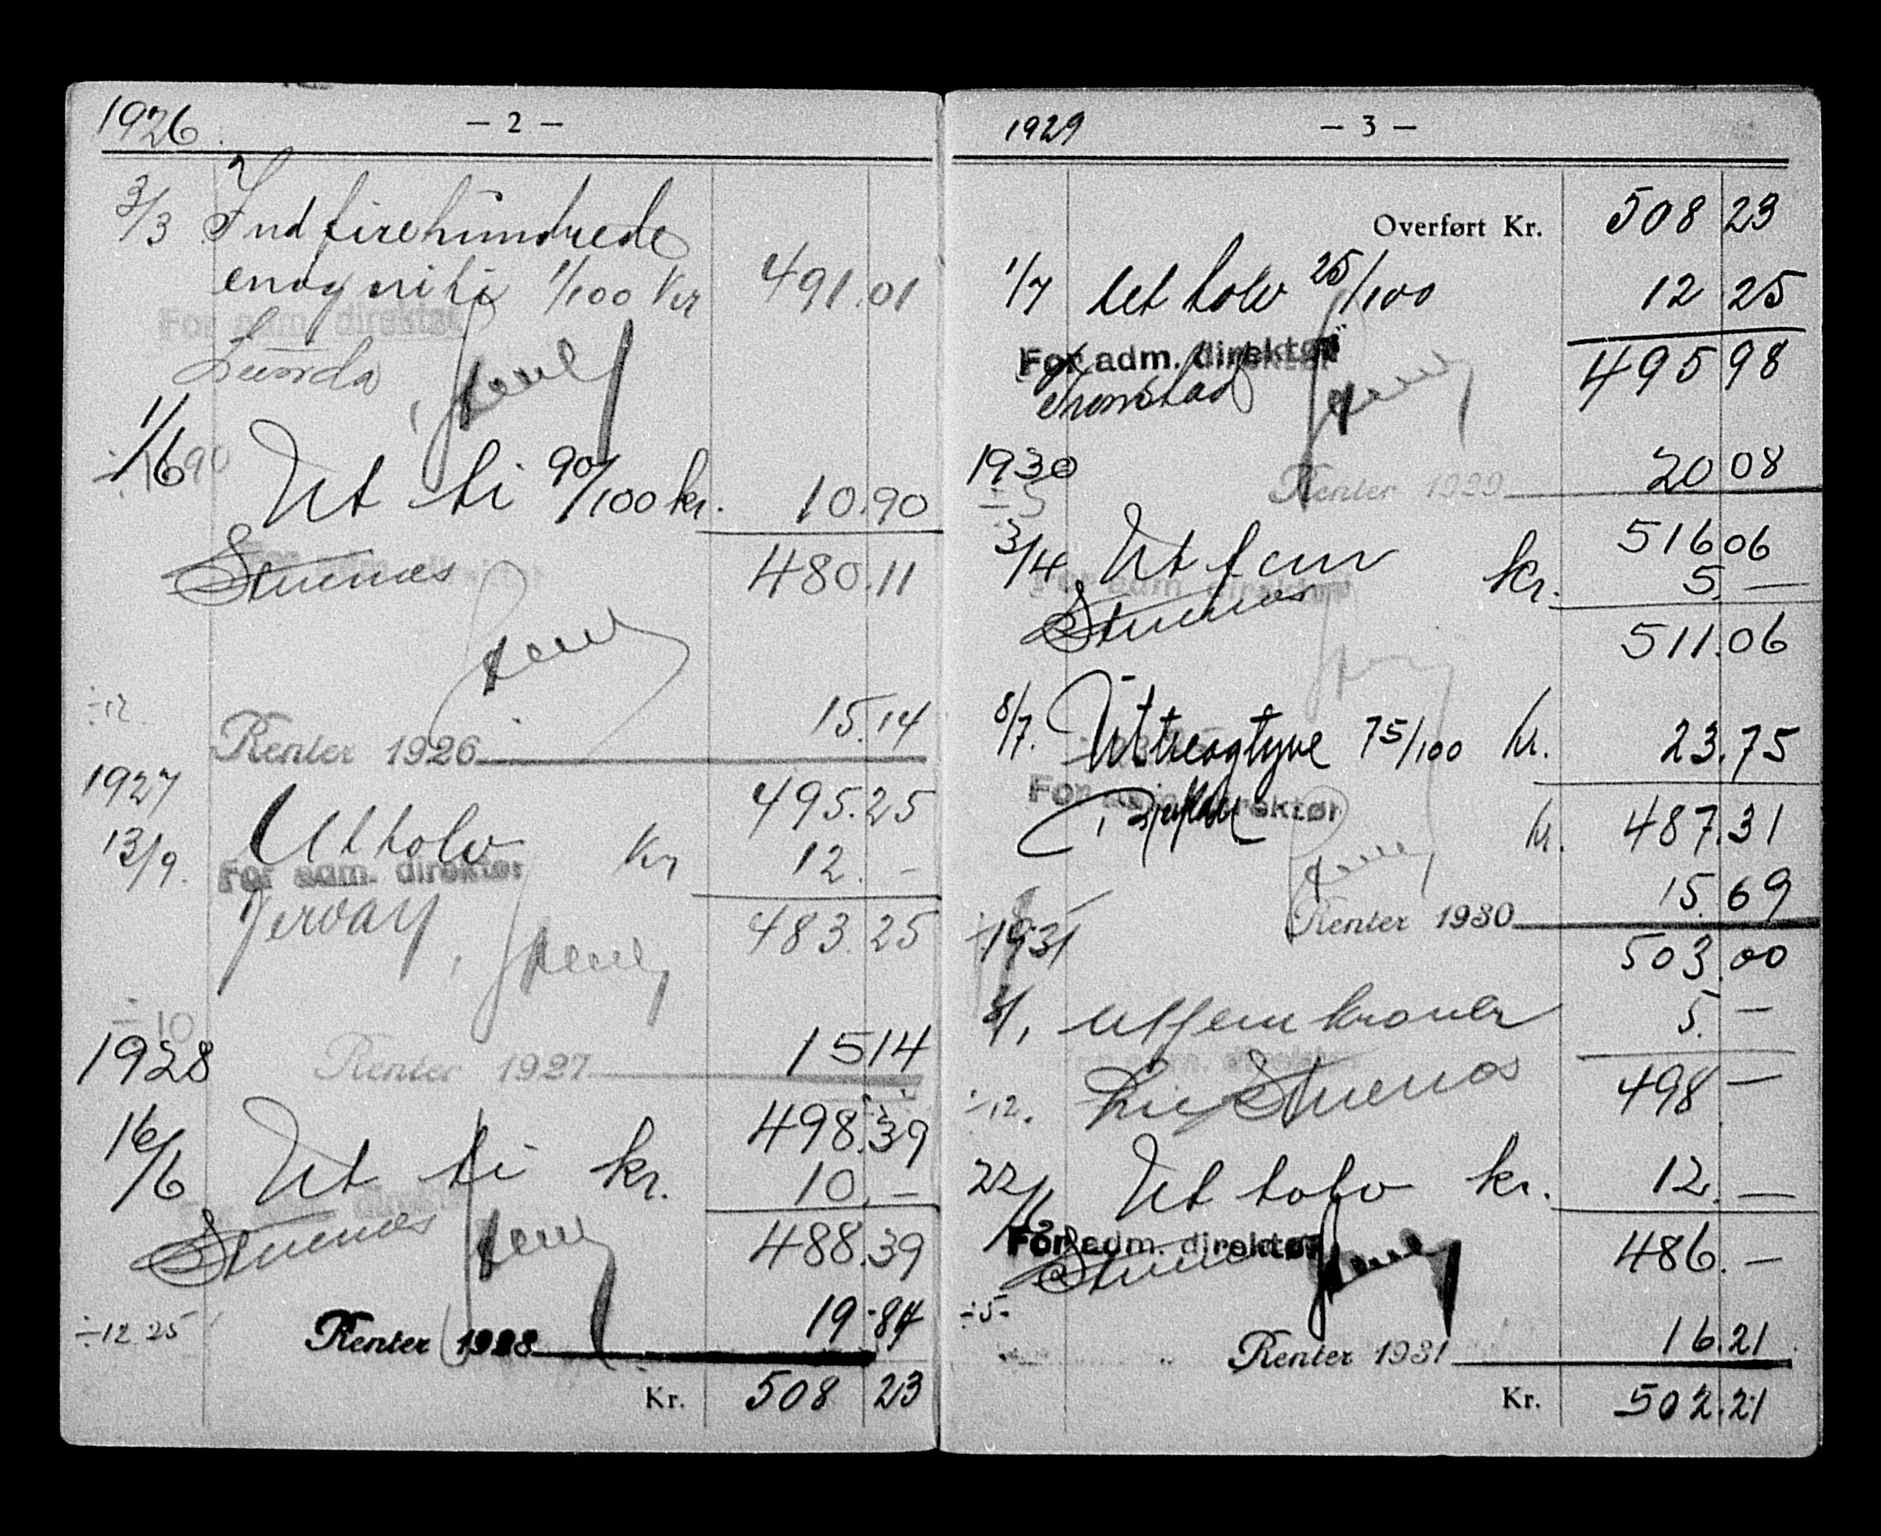 1926
— 2 —
3/3 Ind firehundrede
enog niti 1/100 Kr 491.01
For adm. direktør
Lunda
1/6 Ut ti 90/100 kr. 10.90
Stuenæs 480.11
÷12.
15.14
Renter 1926
1927
495.25
13/9. Ut tolv Kr 12.-
For adm. direktør
483.25
÷10
1928
Renter 1927 1514
498.39
16/6 Ut ti kr. 10.—
Stuenæs 488.39
÷12 25
Renter 1928 19.84
Kr. 508 23
1929
— 3 —
Overført Kr. 508 23
1/7 Ut tolv 25/100 12 25
For adm. direktør
495 98
Tronstad
1930
÷5
Renter 1929 20 08
516 06
3/4 Ut fem kr. 5.—
For adm. direktør
Stuenæs
511.06
8/7. Ut treogtyve 75/100 kr. 23.75
For adm. direktør
kr. 487.31
15.69
Renter 1930
1931
503.00
8/1, Ut fem kroner 5.—
For adm. direktør
498 —
÷12.
Stuenæs
22/6 Ut tolv kr. 12.—
For adm. direktør
Stuenæs
486.—
÷5-
Renter 1931 16.21
Kr. 502.21